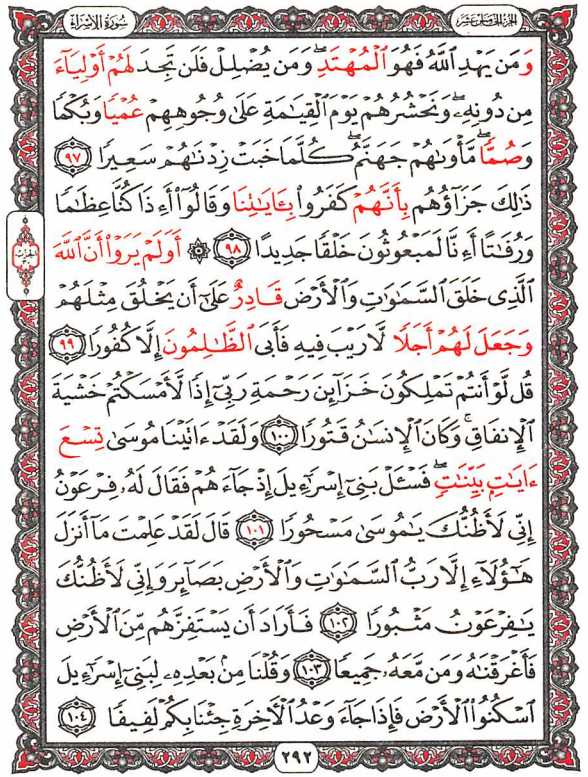 الجزء الخامس عشر
سورة الإسراء
وَمَن يَهْدِ ٱللَّهُ فَهُوَ ٱلْمُهْتَدِۖ وَمَن يُضْلِلْ فَلَن تَجِدَ لَهُمْ أَوْلِيَآءَ
مِن دُونِهِۦۖ وَنَحْشُرُهُمْ يَوْمَ ٱلْقِيَٰمَةِ عَلَىٰ وُجُوهِهِمْ عُمْيًا وَبُكْمًا
وَصُمًّاۖ مَّأْوَىٰهُمْ جَهَنَّمُۖ كُلَّمَا خَبَتْ زِدْنَٰهُمْ سَعِيرًا ٩٧
ذَٰلِكَ جَزَآؤُهُم بِأَنَّهُمْ كَفَرُوا۟ بِـَٔايَٰتِنَا وَقَالُوٓا۟ أَءِذَا كُنَّا عِظَٰمًا
وَرُفَٰتًا أَءِنَّا لَمَبْعُوثُونَ خَلْقًا جَدِيدًا ٩٨ ۞ أَوَلَمْ يَرَوْا۟ أَنَّ ٱللَّهَ
ٱلَّذِى خَلَقَ ٱلسَّمَٰوَٰتِ وَٱلْأَرْضَ قَادِرٌ عَلَىٰٓ أَن يَخْلُقَ مِثْلَهُمْ
وَجَعَلَ لَهُمْ أَجَلًا لَّا رَيْبَ فِيهِ فَأَبَى ٱلظَّٰلِمُونَ إِلَّا كُفُورًا ٩٩
قُل لَّوْ أَنتُمْ تَمْلِكُونَ خَزَآئِنَ رَحْمَةِ رَبِّىٓ إِذًا لَّأَمْسَكْتُمْ خَشْيَةَ
ٱلْإِنفَاقِۚ وَكَانَ ٱلْإِنسَٰنُ قَتُورًا ١٠٠ وَلَقَدْ ءَاتَيْنَا مُوسَىٰ تِسْعَ
ءَايَٰتٍۭ بَيِّنَٰتٍۖ فَسْـَٔلْ بَنِىٓ إِسْرَٰٓءِيلَ إِذْ جَآءَهُمْ فَقَالَ لَهُۥ فِرْعَوْنُ
إِنِّى لَأَظُنُّكَ يَٰمُوسَىٰ مَسْحُورًا ١٠١ قَالَ لَقَدْ عَلِمْتَ مَآ أَنزَلَ
هَٰٓؤُلَآءِ إِلَّا رَبُّ ٱلسَّمَٰوَٰتِ وَٱلْأَرْضِ بَصَآئِرَ وَإِنِّى لَأَظُنُّكَ
يَٰفِرْعَوْنُ مَثْبُورًا ١٠٢ فَأَرَادَ أَن يَسْتَفِزَّهُم مِّنَ ٱلْأَرْضِ
فَأَغْرَقْنَٰهُ وَمَن مَّعَهُۥ جَمِيعًا ١٠٣ وَقُلْنَا مِنۢ بَعْدِهِۦ لِبَنِىٓ إِسْرَٰٓءِيلَ
ٱسْكُنُوا۟ ٱلْأَرْضَ فَإِذَا جَآءَ وَعْدُ ٱلْأَخِرَةِ جِئْنَا بِكُمْ لَفِيفًا ١٠٤
٢٩٢